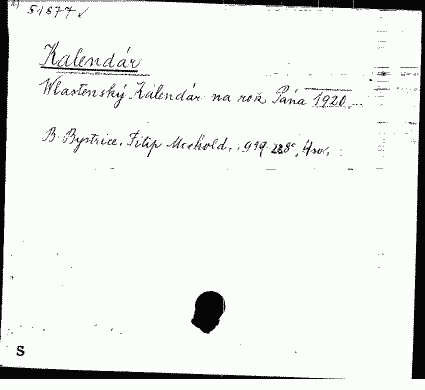 51877 ✓
Kalendár
Wlastenský Kalendár na rok Pána 1920.
B. Bystrice. Filip Machold. 919. 8°.
S